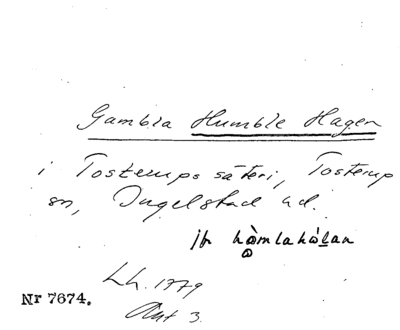 Gambla Humble Hagen
i Tosterups säteri, Tosterup
sn, Ingelstad hd.
jfr hòmlahálan
Lh. 1779
Akt 3.
Nr 7674.